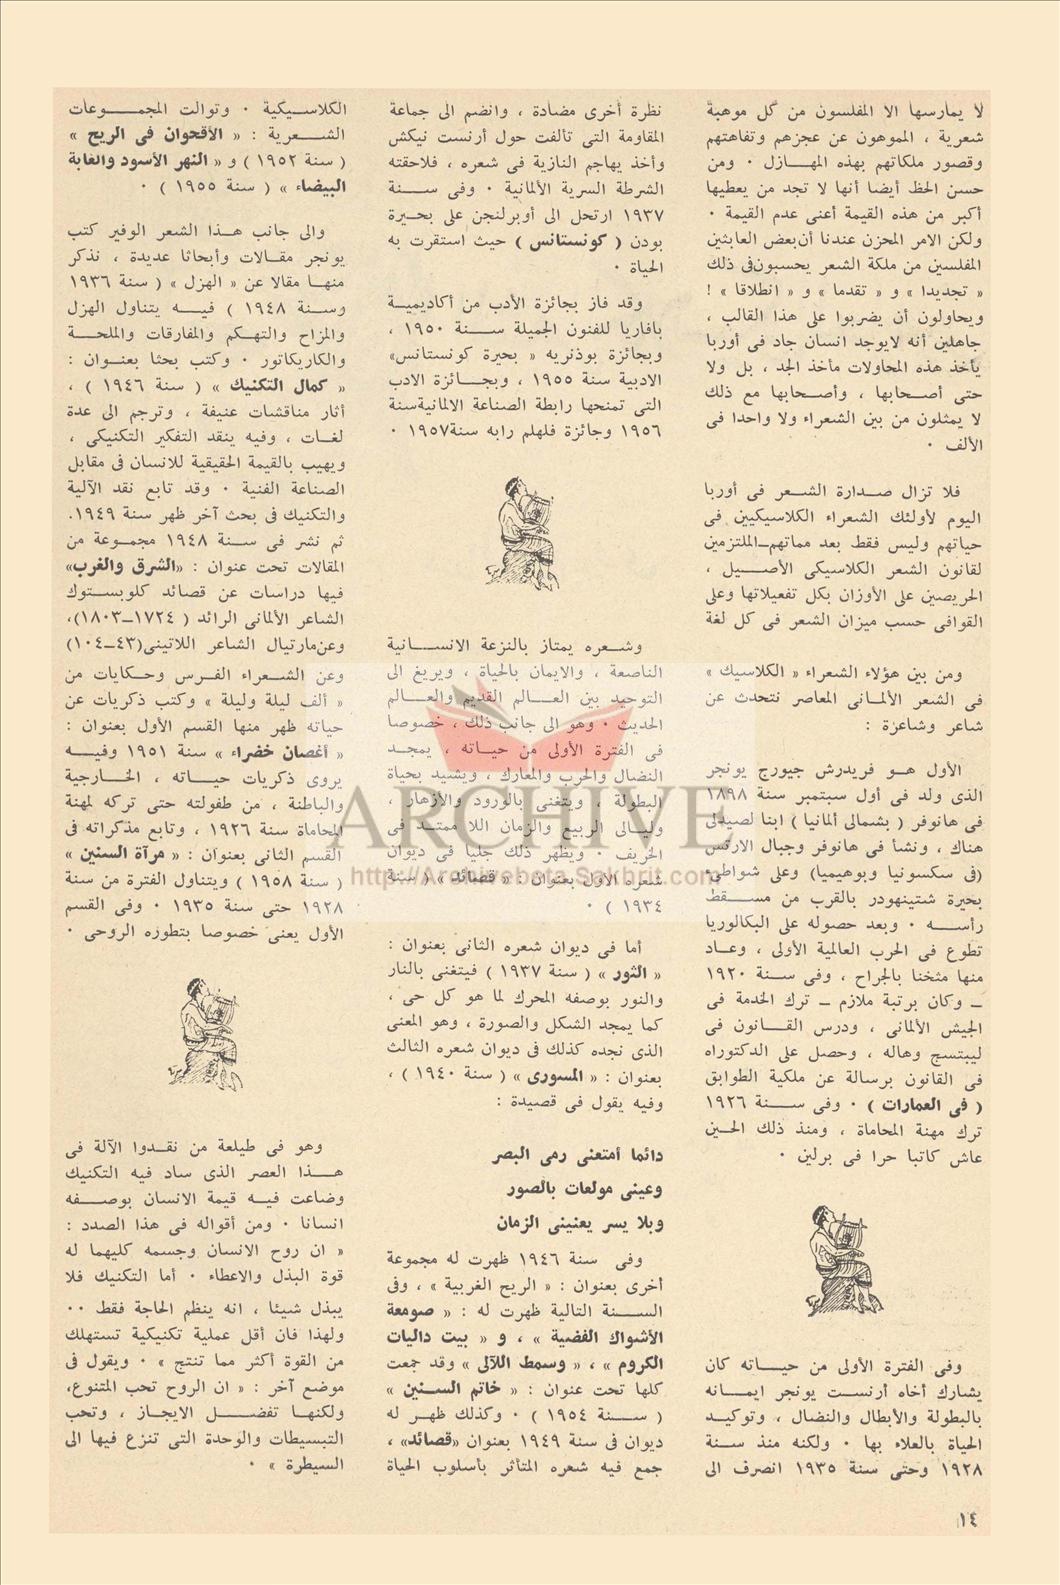 لا يمارسها الا المفلسون من كل موهبة
شعرية ، المموهون عن عجزهم وتفاهتهم
وقصور ملكاتهم بهذه المهازل . ومن
حسن الحظ أيضا أنها لا تجد من يعطيها
أكبر من هذه القيمة أعنى عدم القيمة .
ولكن الامر المحزن عندنا أن بعض العابثين
المفلسين من ملكة الشعر يحسبون فى ذلك
« تجديدا » و « تقدما » و « انطلاقا » !
ويحاولون أن يضربوا على هذا القالب ،
جاهلين أنه لا يوجد انسان جاد فى أوربا
يأخذ هذه المحاولات مأخذ الجد ، بل ولا
حتى أصحابها ، وأصحابها مع ذلك
لا يمثلون من بين الشعراء ولا واحدا فى
الألف .
فلا تزال صدارة الشعر فى أوربا
اليوم لأولئك الشعراء الكلاسيكيين فى
حياتهم وليس فقط بعد مماتهم ـ الملتزمين
لقانون الشعر الكلاسيكى الأصيل ،
الحريصين على الأوزان بكل تفعيلاتها وعلى
القوافى حسب ميزان الشعر فى كل لغة
ومن بين هؤلاء الشعراء « الكلاسيك »
فى الشعر الألمانى المعاصر نتحدث عن
شاعر وشاعرة :
الأول هو فريدرش جيورج يونجر
الذى ولد فى أول سبتمبر سنة ١٨٩٨
فى هانوفر ( بشمالى ألمانيا ) ابنا لصيدلى
هناك ، ونشأ فى هانوفر وجبال الارتس
(فى سكسونيا وبوهيميا) وعلى شواطىء
بحيرة شتينهودر بالقرب من مسقط
رأسه . وبعد حصوله على البكالوريا
تطوع فى الحرب العالمية الأولى ، وعاد
منها مثخنا بالجراح ، وفى سنة ١٩٢٠
ـ وكان برتبة ملازم ـ ترك الخدمة فى
الجيش الألمانى ، ودرس القانون فى
ليبتسج وهاله ، وحصل على الدكتوراه
فى القانون برسالة عن ملكية الطوابق
( فى العمارات ) . وفى سنة ١٩٢٦
ترك مهنة المحاماة ، ومنذ ذلك الحين
عاش كاتبا حرا فى برلين .
وفى الفترة الأولى من حياته كان
يشارك أخاه أرنست يونجر ايمانه
بالبطولة والأبطال والنضال ، وتوكيد
الحياة بالعلاء بها . ولكنه منذ سنة
١٩٢٨ وحتى سنة ١٩٣٥ انصرف الى
نظرة أخرى مضادة ، وانضم الى جماعة
المقاومة التى تألفت حول أرنست نيكش
وأخذ يهاجم النازية فى شعره ، فلاحقته
الشرطة السرية الألمانية . وفى سنة
١٩٣٧ ارتحل الى أوبرلنجن على بحيرة
بودن ( كونستانس ) حيث استقرت به
الحياة .
وقد فاز بجائزة الأدب من أكاديمية
بافاريا للفنون الجميلة سنة ١٩٥٠ ،
وبجائزة بوذنريه « بحيرة كونستانس»
الادبية سنة ١٩٥٥ ، وبجائزة الادب
التى تمنحها رابطة الصناعة الالمانية سنة
١٩٥٦ وجائزة فلهلم رابه سنة ١٩٥٧ .
وشعره يمتاز بالنزعة الانسانية
الناصعة ، والايمان بالحياة ، ويريغ الى
التوحيد بين العالم القديم والعالم
الحديث . وهو الى جانب ذلك ، خصوصا
فى الفترة الأولى من حياته ، يمجد
النضال والحرب والمعارك ، ويشيد بحياة
البطولة ، ويتغنى بالورود والأزهار ،
وليالى الربيع والزمان اللا ممتد فى
الخريف . ويظهر ذلك جليا فى ديوان
شعره الأول بعنوان : « قصائد » ( سنة
١٩٣٤ ) .
أما فى ديوان شعره الثانى بعنوان :
« الثور » ( سنة ١٩٣٧ ) فيتغنى بالنار
والنور بوصفه المحرك لما هو كل حى ،
كما يمجد الشكل والصورة ، وهو المعنى
الذى نجده كذلك فى ديوان شعره الثالث
بعنوان : « المسورى » ( سنة ١٩٤٠ ) ،
وفيه يقول فى قصيدة :
دائما أمتعنى رمى البصر
وعينى مولعات بالصور
وبلا يسر يعنينى الزمان
وفى سنة ١٩٤٦ ظهرت له مجموعة
أخرى بعنوان : « الريح الغربية » ، وفى
السنة التالية ظهرت له : « صومعة
الأشواك الفضية » ، و « بيت داليات
الكروم » ، « وسمط اللآلى » وقد جمعت
كلها تحت عنوان : « خاتم السنين »
( سنة ١٩٥٤ ) . وكذلك ظهر له
ديوان فى سنة ١٩٤٩ بعنوان «قصائد» ،
جمع فيه شعره المتأثر بأسلوب الحياة
الكلاسيكية . وتوالت المجموعات
الشعرية : « الأقحوان فى الريح »
( سنة ١٩٥٢ ) و « النهر الأسود والغابة
البيضاء » ( سنة ١٩٥٥ ) .
والى جانب هذا الشعر الوفير كتب
يونجر مقالات وأبحاثا عديدة ، نذكر
منها مقالا عن « الهزل » ( سنة ١٩٣٦
وسنة ١٩٤٨ ) فيه يتناول الهزل
والمزاح والتهكم والمفارقات والملحة
والكاريكاتور . وكتب بحثا بعنوان :
« كمال التكنيك » ( سنة ١٩٤٦ ) ،
أثار مناقشات عنيفة ، وترجم الى عدة
لغات ، وفيه ينقد التفكير التكنيكى ،
ويهيب بالقيمة الحقيقية للانسان فى مقابل
الصناعة الفنية . وقد تابع نقد الآلية
والتكنيك فى بحث آخر ظهر سنة ١٩٤٩.
ثم نشر فى سنة ١٩٤٨ مجموعة من
المقالات تحت عنوان : «الشرق والغرب»
فيها دراسات عن قصائد كلوبستوك
الشاعر الألمانى الرائد ( ١٧٢٤ـ١٨٠٣)،
وعن مارتيال الشاعر اللاتينى (٤٣ـ١٠٤)
وعن الشعراء الفرس وحكايات من
« ألف ليلة وليلة » وكتب ذكريات عن
حياته ظهر منها القسم الأول بعنوان :
« أغصان خضراء » سنة ١٩٥١ وفيه
يروى ذكريات حياته ، الخارجية
والباطنة ، من طفولته حتى تركه لمهنة
المحاماة سنة ١٩٢٦ ، وتابع مذكراته فى
القسم الثانى بعنوان : « مرآة السنين »
( سنة ١٩٥٨ ) ويتناول الفترة من سنة
١٩٢٨ حتى سنة ١٩٣٥ . وفى القسم
الأول يعنى خصوصا بتطوره الروحى .
وهو فى طليعة من نقدوا الآلة فى
هذا العصر الذى ساد فيه التكنيك
وضاعت فيه قيمة الانسان بوصفه
انسانا . ومن أقواله فى هذا الصدد :
« ان روح الانسان وجسمه كليهما له
قوة البذل والاعطاء . أما التكنيك فلا
يبذل شيئا ، انه ينظم الحاجة فقط ..
ولهذا فان أقل عملية تكنيكية تستهلك
من القوة أكثر مما تنتج » . ويقول فى
موضع آخر : « ان الروح تحب المتنوع،
ولكنها تفضل الايجاز ، وتحب
التبسيطات والوحدة التى تنزع فيها الى
السيطرة » .
١٤
ARCHIVE
http://Archivebeta.Sakhrit.com